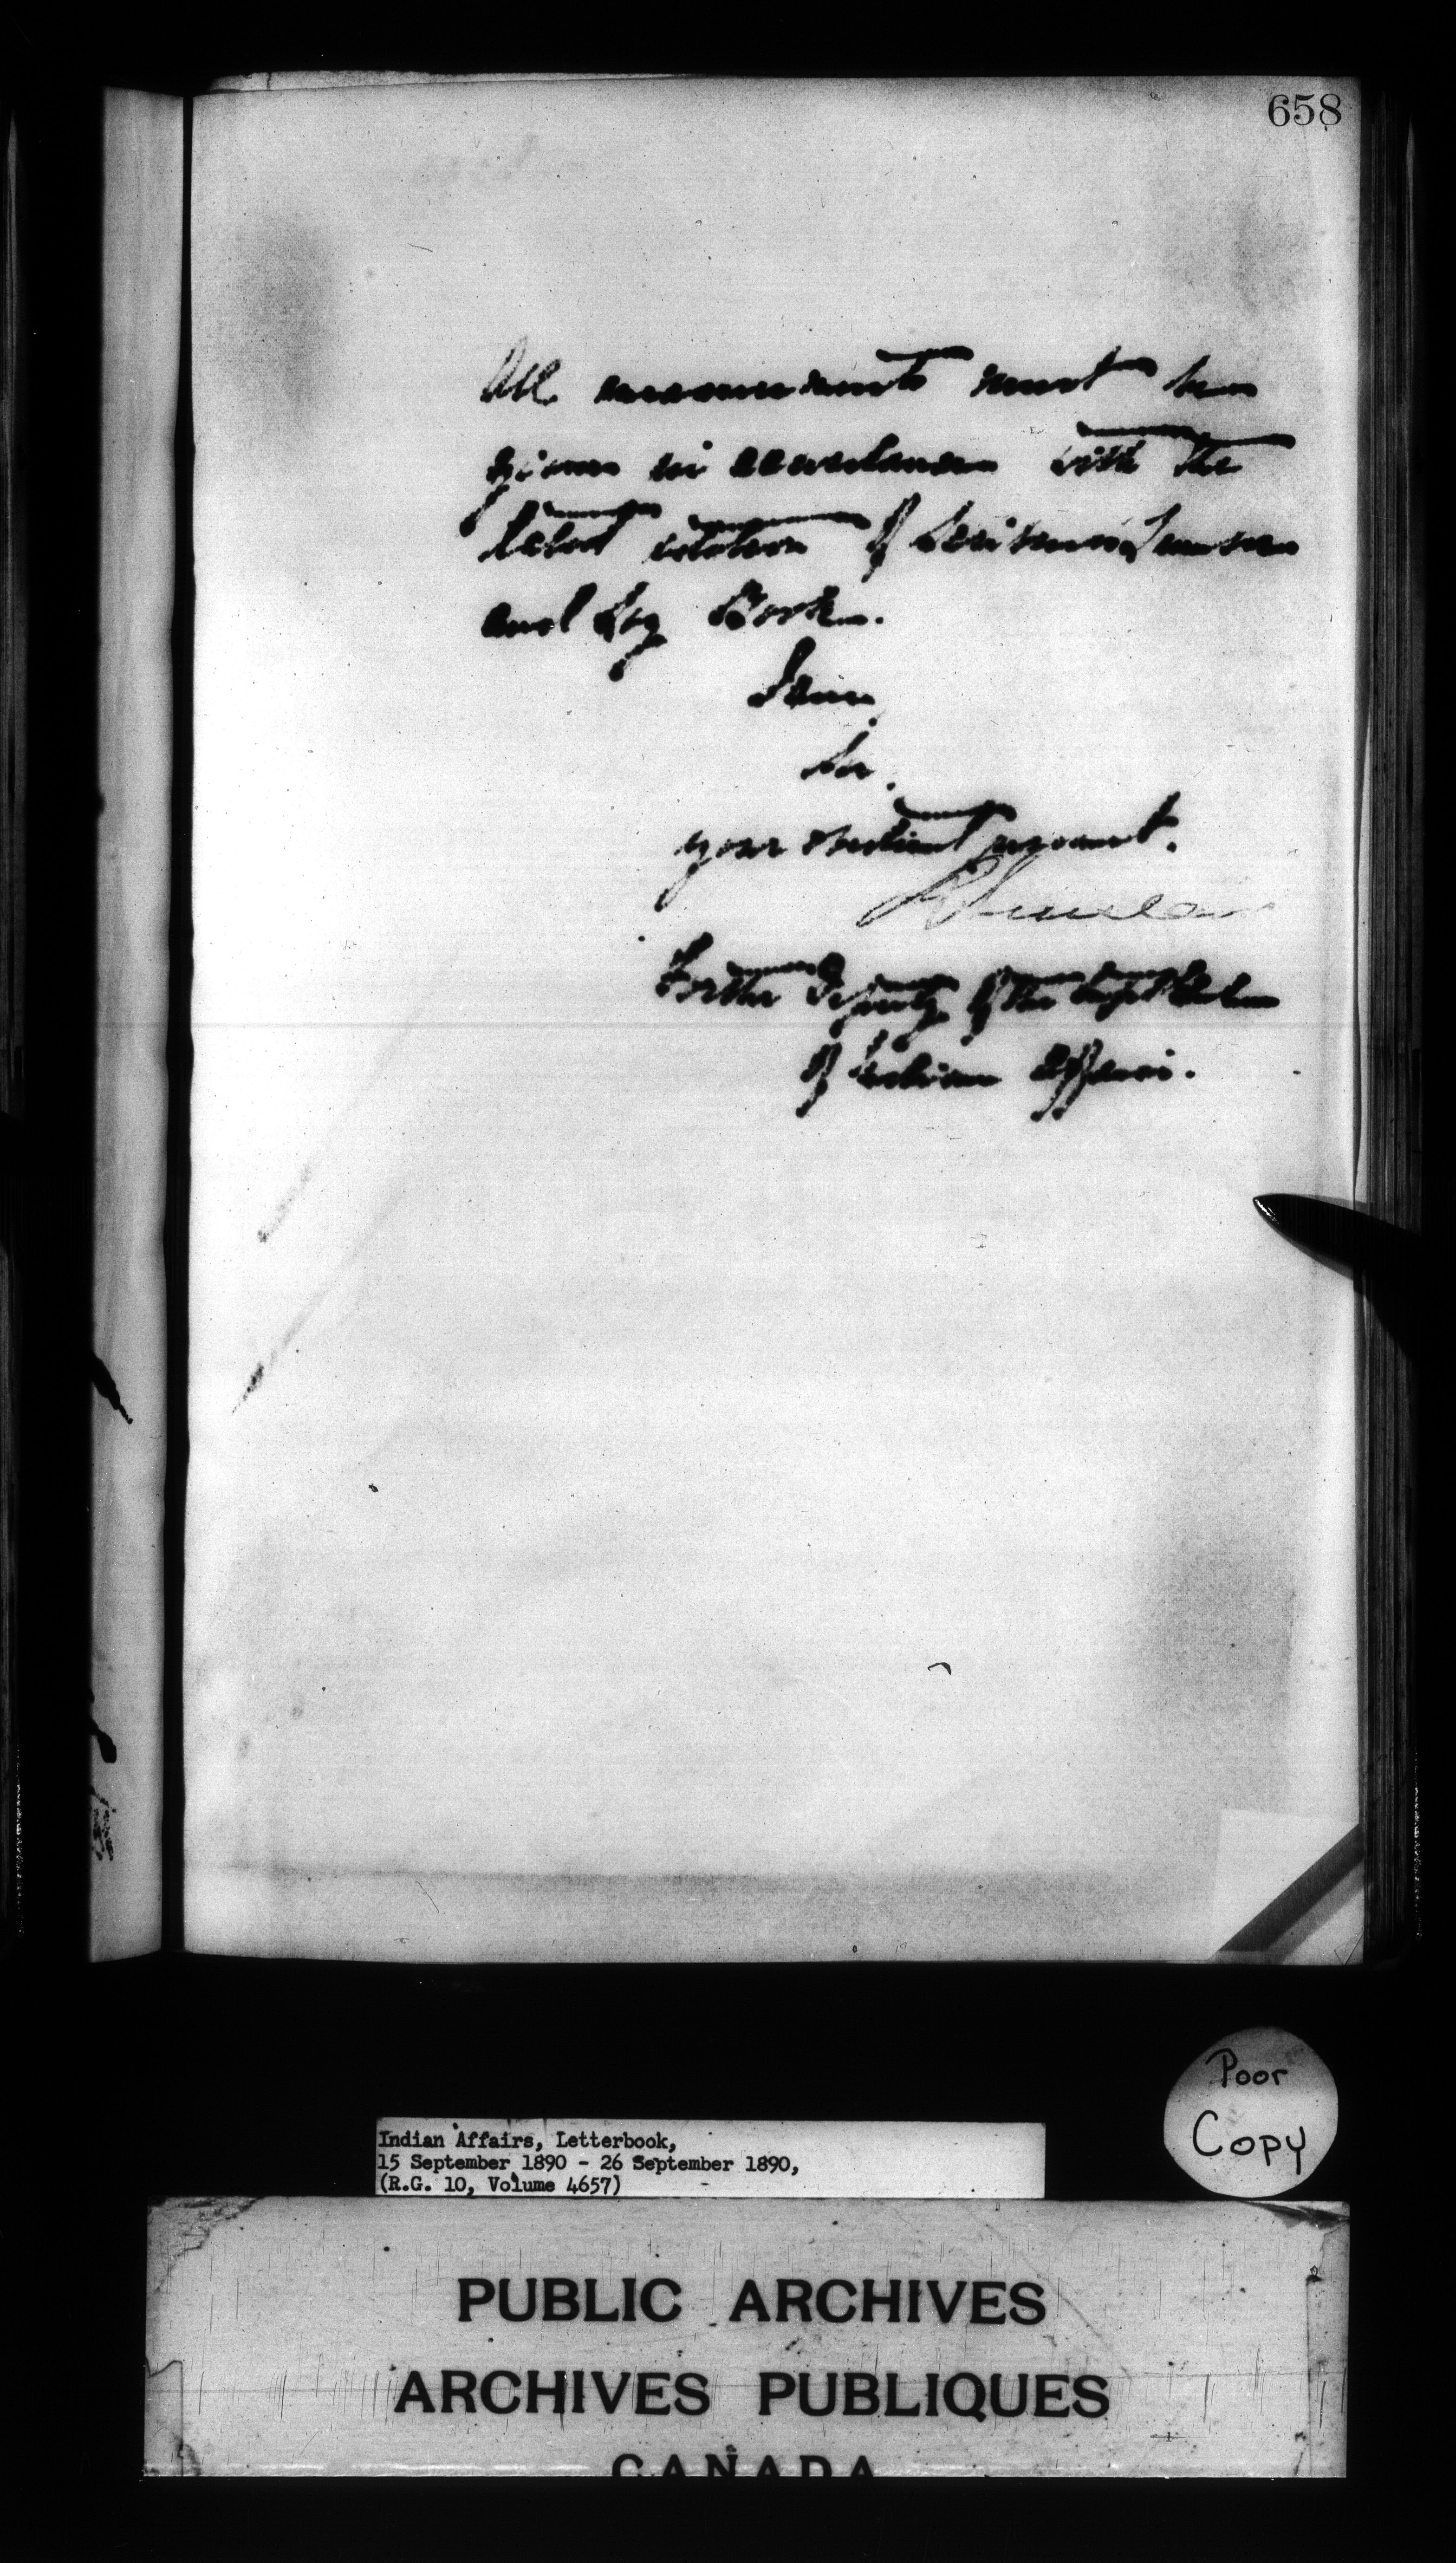 658
All measurements must be
given in accordance with the
latest edition of Scribner's Lumber
and Log Book.
I am
Sir,
your obedient servant.
For the Deputy of the Supt General
of Indian Affairs.
Poor
Copy
Indian Affairs, Letterbook,
15 September 1890 - 26 September 1890,
(R.G. 10, Volume 4657)
PUBLIC ARCHIVES
ARCHIVES PUBLIQUES
CANADA